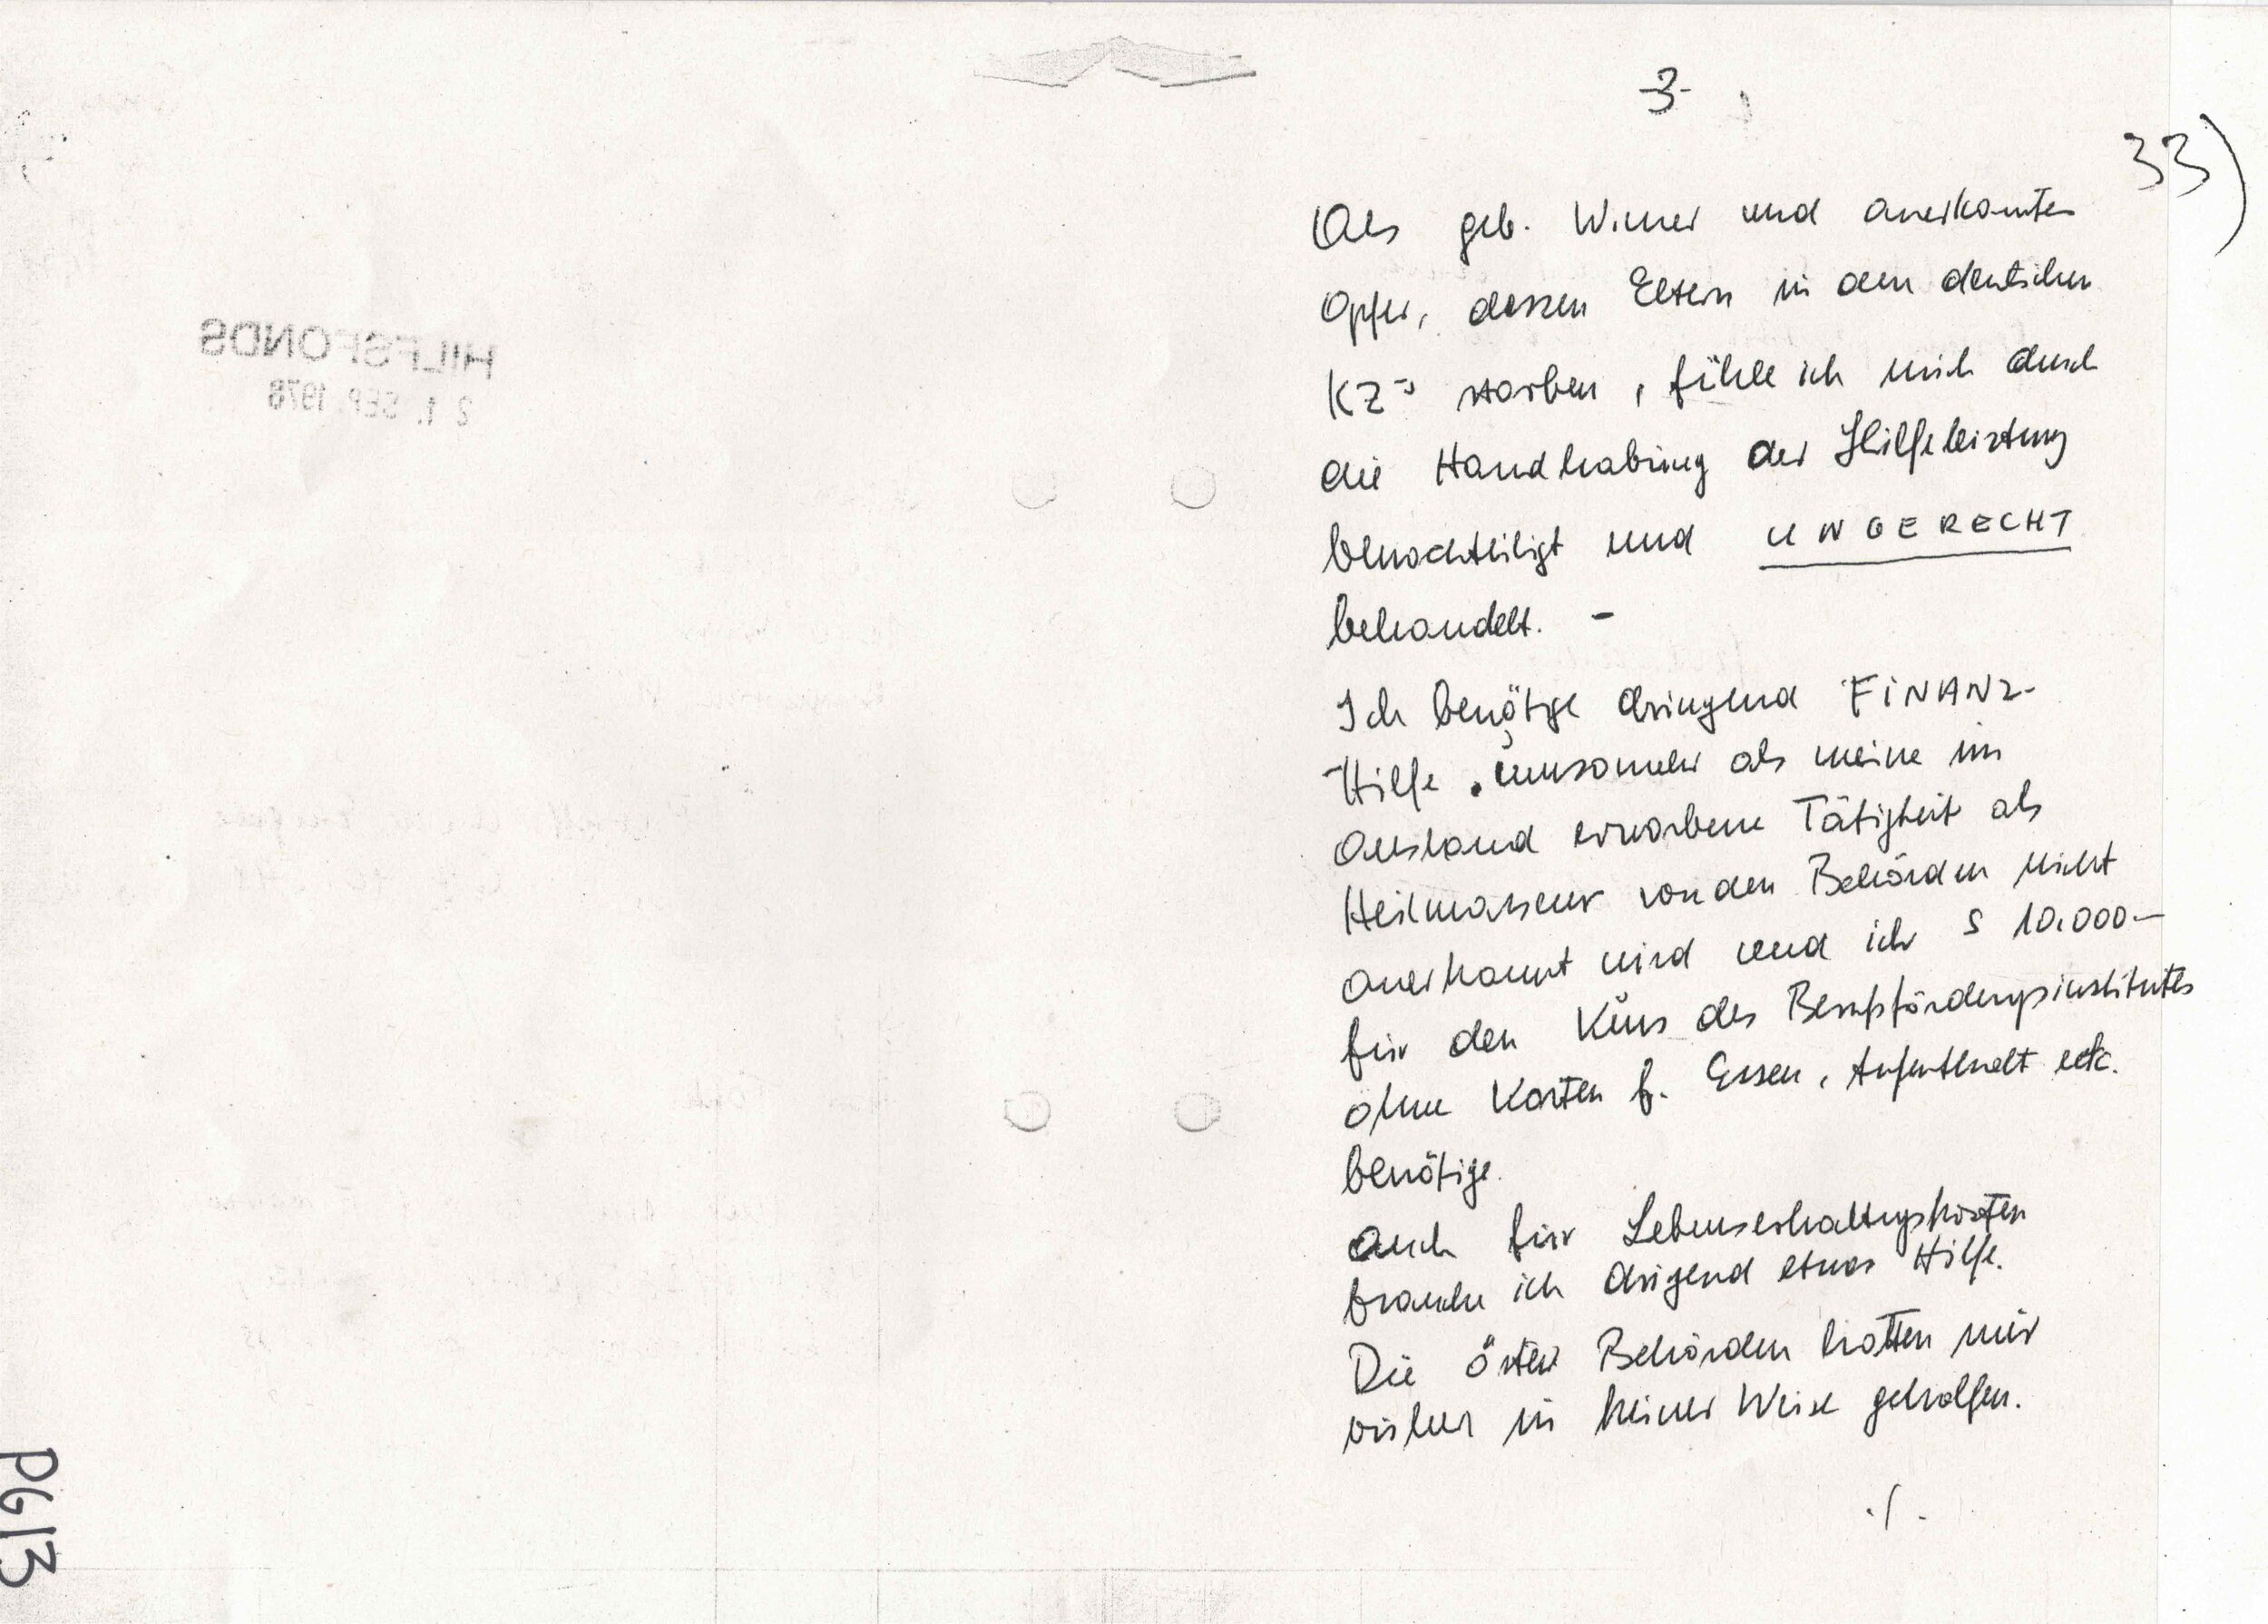 HILFSFONDS
21. SEP. 1978
PG/3
-3-
33)
Als geb. Wiener und anerkannter
Opfer, dessen Eltern in den deutschen
KZs starben, fühle ich mich durch
die Handhabung der Hilfeleistung
benachteiligt und UNGERECHT
behandelt. -
Ich benötige dringend FINANZ-
Hilfe, umsomehr als meine im
Ausland erworbene Tätigkeit als
Heilmasseur von den Behörden nicht
anerkannt wird und ich S 10.000-
für den Kurs des Berufsförderungsinstitutes
ohne Kosten f. Essen, Aufenthalt etc.
benötige.
Auch für Lebenserhaltungskosten
brauche ich dringend etwas Hilfe.
Die öster Behörden hatten mir
bisher in keiner Weise geholfen.
./.